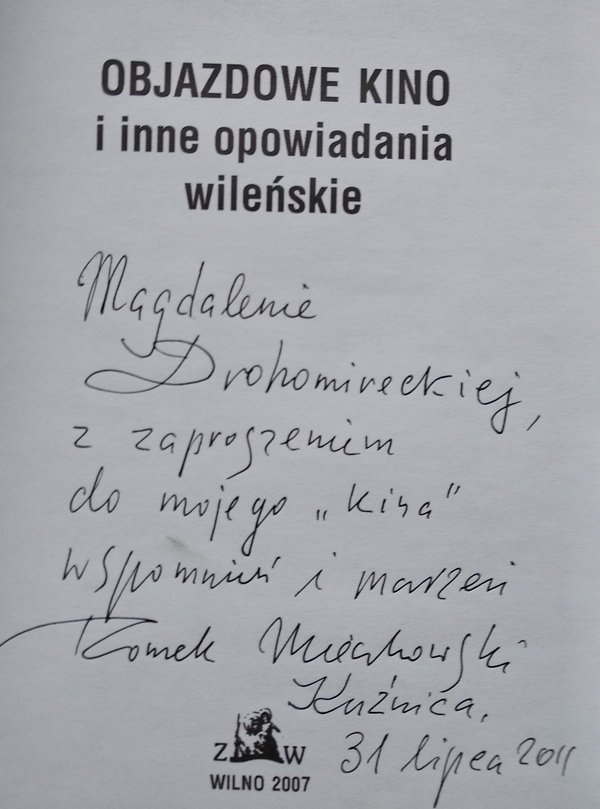 OBJAZDOWE KINO
i inne opowiadania
wileńskie
Magdalenie
Drohomireckiej,
z zaproszeniem
do mojego „kina”
wspomnień i marzeń
Romek Mieczkowski
Kuźnica,
31 lipca 2011
Z W
WILNO 2007